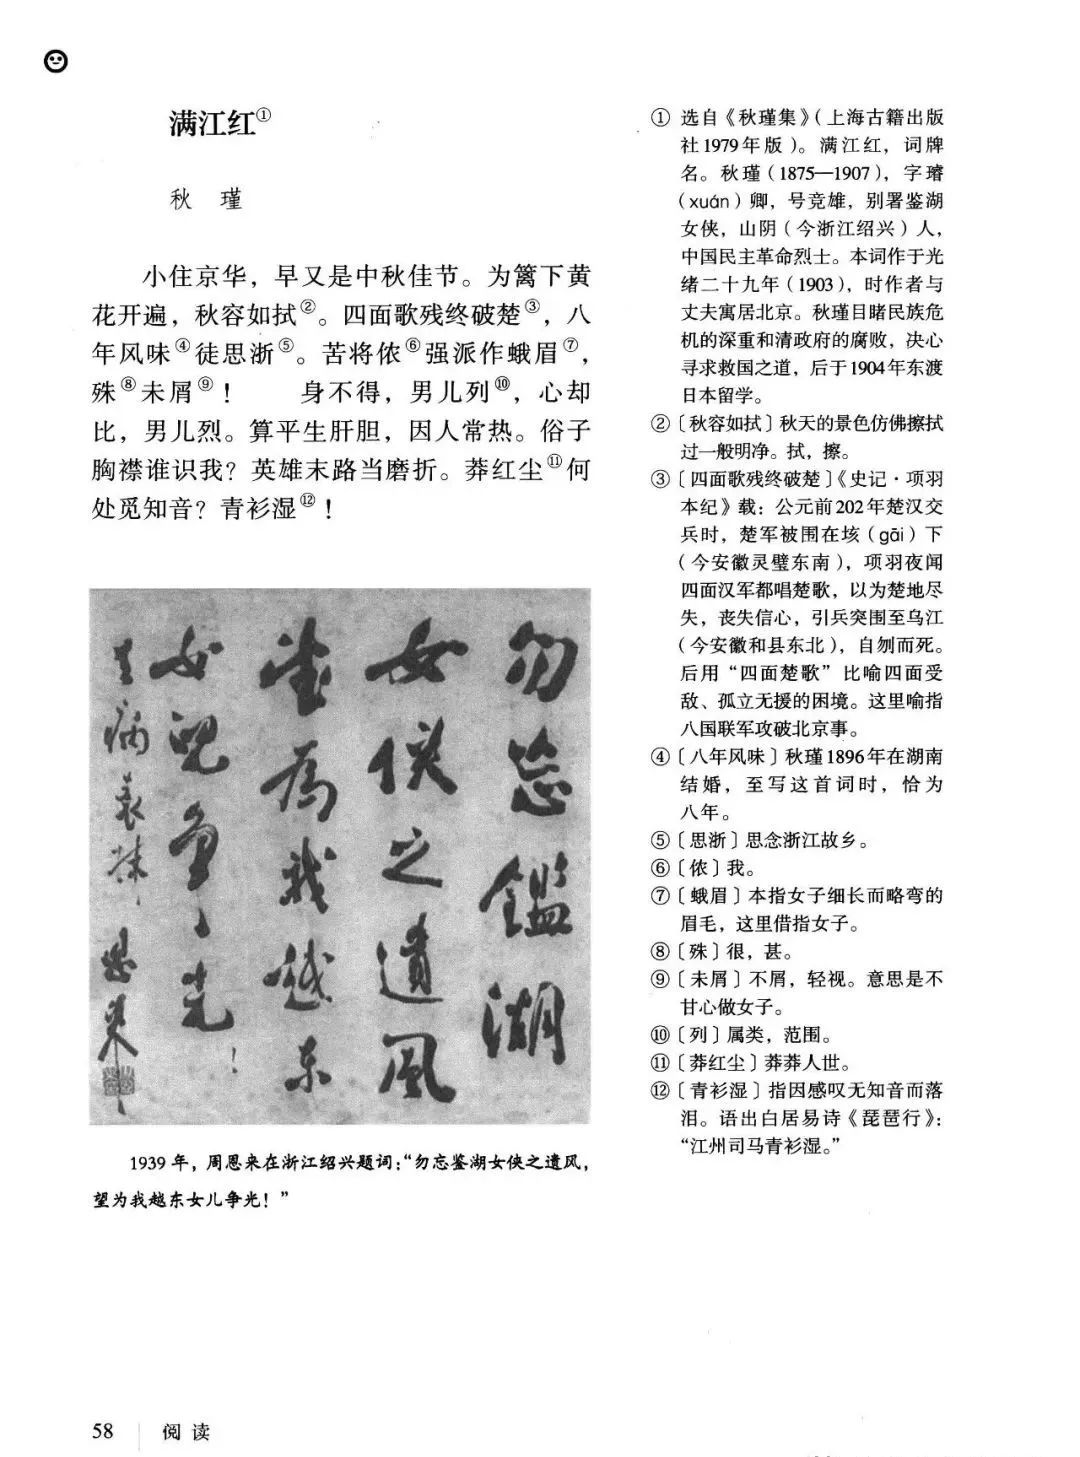 满江红①
秋 瑾
小住京华，早又是中秋佳节。为篱下黄
花开遍，秋容如拭②。四面歌残终破楚③，八
年风味④徒思浙⑤。苦将侬⑥强派作蛾眉⑦，
殊⑧未屑⑨！ 身不得，男儿列⑩，心却
比，男儿烈。算平生肝胆，因人常热。俗子
胸襟谁识我？英雄末路当磨折。莽红尘⑪何
处觅知音？青衫湿⑫！
勿忘鑑湖
女侠之遺风
望为我越东
女兒争光！
1939年，周恩来在浙江绍兴题词：“勿忘鉴湖女侠之遗风，
望为我越东女儿争光！”
① 选自《秋瑾集》（上海古籍出版
社1979年版）。满江红，词牌
名。秋瑾（1875—1907），字璿
（xuán）卿，号竞雄，别署鉴湖
女侠，山阴（今浙江绍兴）人，
中国民主革命烈士。本词作于光
绪二十九年（1903），时作者与
丈夫寓居北京。秋瑾目睹民族危
机的深重和清政府的腐败，决心
寻求救国之道，后于1904年东渡
日本留学。
②〔秋容如拭〕秋天的景色仿佛擦拭
过一般明净。拭，擦。
③〔四面歌残终破楚〕《史记·项羽
本纪》载：公元前202年楚汉交
兵时，楚军被围在垓（gāi）下
（今安徽灵璧东南），项羽夜闻
四面汉军都唱楚歌，以为楚地尽
失，丧失信心，引兵突围至乌江
（今安徽和县东北），自刎而死。
后用“四面楚歌”比喻四面受
敌、孤立无援的困境。这里喻指
八国联军攻破北京事。
④〔八年风味〕秋瑾1896年在湖南
结婚，至写这首词时，恰为
八年。
⑤〔思浙〕思念浙江故乡。
⑥〔侬〕我。
⑦〔蛾眉〕本指女子细长而略弯的
眉毛，这里借指女子。
⑧〔殊〕很，甚。
⑨〔未屑〕不屑，轻视。意思是不
甘心做女子。
⑩〔列〕属类，范围。
⑪〔莽红尘〕莽莽人世。
⑫〔青衫湿〕指因感叹无知音而落
泪。语出白居易诗《琵琶行》：
“江州司马青衫湿。”
58 阅读